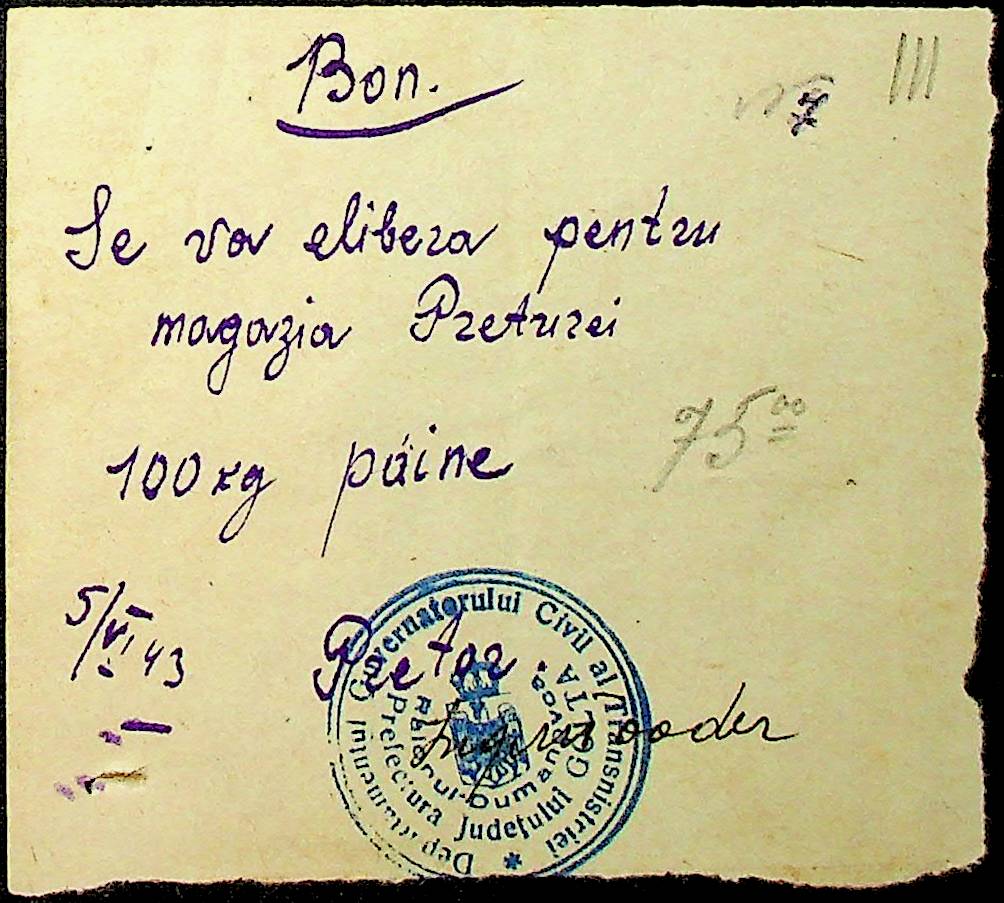 Bon.
7
III
Se va elibera pentru
magazia Preturei
100 kg pâine
75 00
5/VI 43
Pretor
Guvernatorului Civil al Transnistriei
Prefectura Județului GOLTA
Raionul Dumanovca